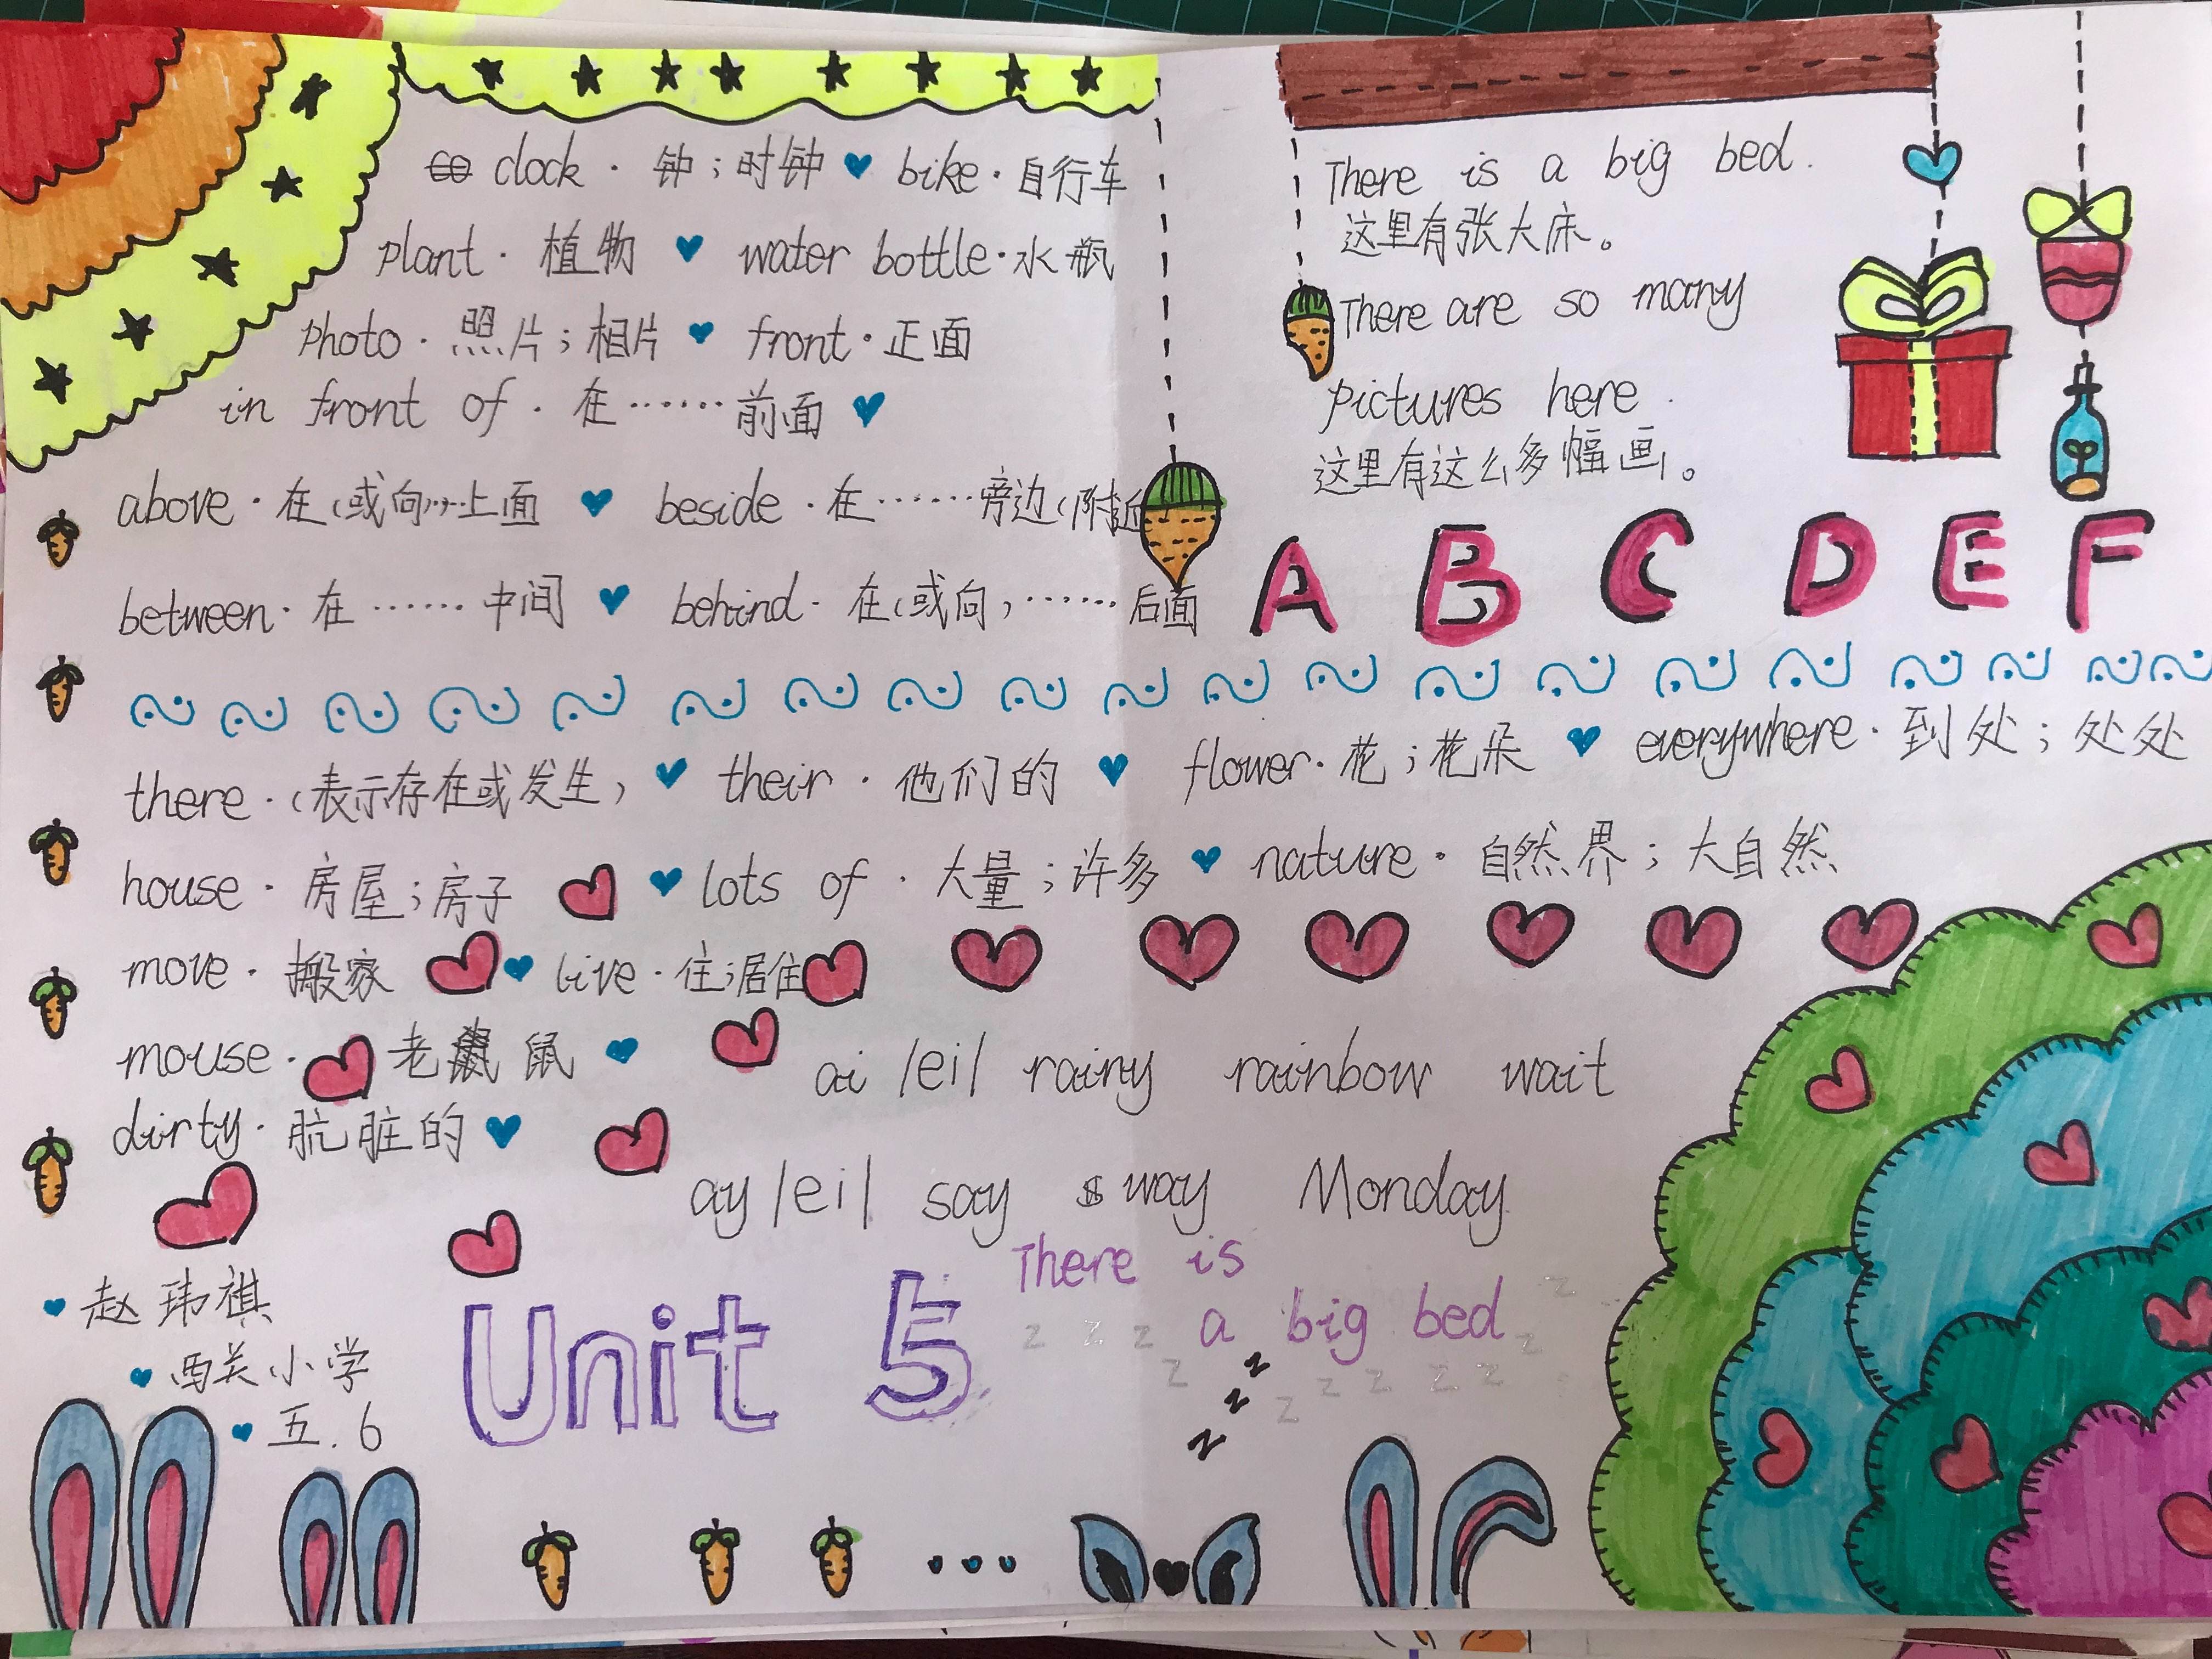 clock · 钟；时钟 bike · 自行车
plant · 植物 water bottle · 水瓶
Photo · 照片；相片 front · 正面
in front of · 在……前面
above · 在(或向)…上面 beside · 在……旁边(附近
between · 在……中间 behind · 在(或向)……后面
There is a big bed.
这里有张大床。
There are so many
pictures here.
这里有这么多幅画。
A B C D E F
there · (表示存在或发生) their · 他们的 flower · 花；花朵 everywhere · 到处；处处
house · 房屋；房子 lots of · 大量；许多 nature · 自然界；大自然
move · 搬家 live · 住；居住
mouse · 老鼠
dirty · 肮脏的
ai /ei/ rainy rainbow wait
ay /ei/ say way Monday
Unit 5
There is
a big bed
z z z z z z z z z z z
z z z
赵玮祺
西关小学
五.6